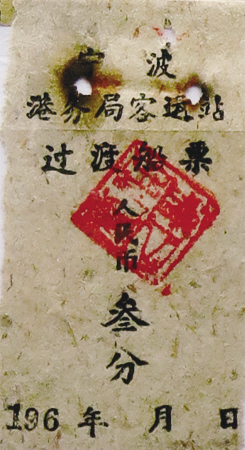 宁波
港务局客运站
过渡船票
人民币
叁分
196 年 月 日